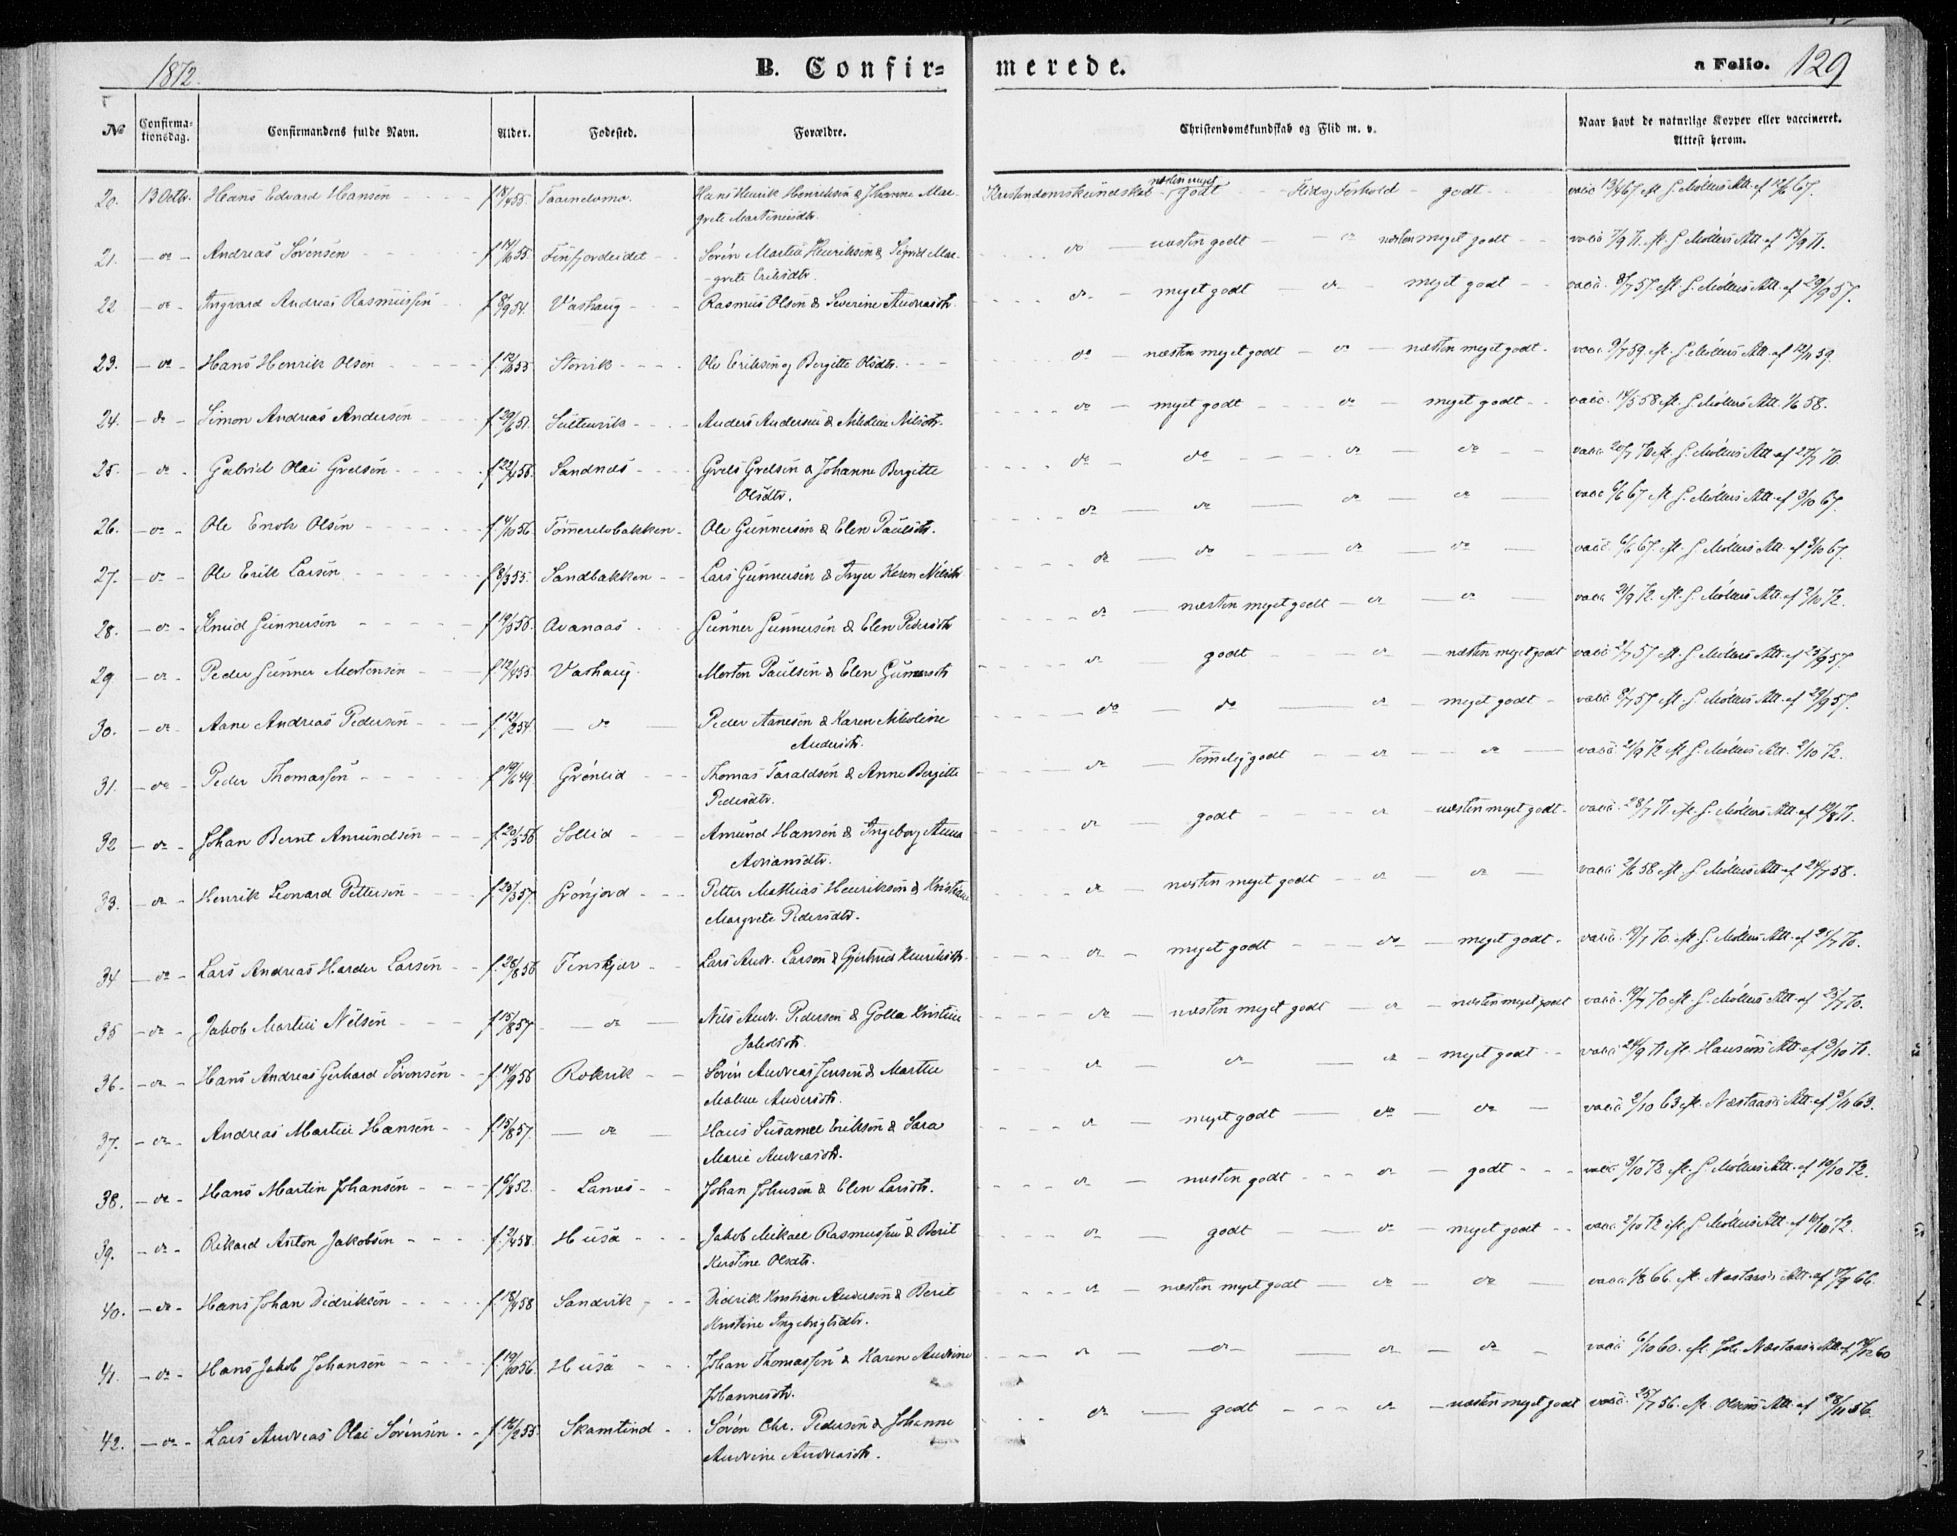 1872.
B. Confir=
merede.
a Folio. 129
No
Confirma-
tionsdag.
Confirmandens fulde Navn.
Alder.
Fødested.
Forældre.
Christendomskundskab og Flid m. v.
Naar havt de naturlige Kopper eller vaccineret.
Attest herom.
20. 13 Octbr. Hans Edvard Hansen f. 18/4 55. Taarndomo. Hans Henrik Henriksen & Johanne Mar-
grete Martinusdtr.
Kristendomskundskab næsten meget godt Flid og Forhold godt vacc. 13/6 67 efr. S. Möllers Att. af 12/6 67.
21. do Andreas Sörensen f. 14/6 55 Finfjordeidet Sören Martin Henriksen & Sigrid Mar-
grete Eriksdtr.
do næsten godt do næsten meget godt vacc. 7/9 71. efr. S. Möllers Att. af 13/9 71.
22 do Ingvard Andreas Rasmussen f. 8/9 54. Vashaug Rasmus Olsen & Severine Andreasdtr.
do meget godt do meget godt vacc. 8/7 57. efr. S. Möllers Att. af 29/9 57.
23. do Hans Henrik Olsen f. 12/6 55 Storvik Ole Eriksen og Bergitte Olsdtr.
do næsten meget godt do næsten meget godt vacc. 9/7 59. efr. S. Möllers Att. af 12/11 59.
24. do Simon Andreas Andersen f. 29/6 57. Sultenvik Anders Andersen & Nikoline Nilsdtr.
do meget godt do meget godt vacc. 14/5 58 efr. S. Möllers Att. 1/6 58.
25. do Gabriel Olai Grelsen f. 22/4 58. Sandnes Grels Grelsen & Johanne Bergitte
Olsdtr.
do do do do vacc. 20/7 70 efr. S. Möllers Att. af 27/7 70.
26. do Ole Enok Olsen f. 4/10 56 Tömmerelvbakken Ole Gunnersen & Elen Paulsdtr.
do do do do vacc. 6/6 67 efr. S. Möllers Att. af 3/10 67.
27. do Ole Erik Larsen f. 8/3 55. Sandbakken Lars Gunnersen & Inger Karen Nilsdtr
do do do do vacc. 6/6 67. efr. S. Möllers Att. af 3/10 67.
28. do Knud Gunnersen f. 19/5 58. Aavanaas Gunner Gunnersen & Elen Pedersdtr
do næsten meget godt do do vacc. 21/9 72. efr. S. Möllers Att. af 2/10 72.
29. do Peder Gunner Mortensen f. 12/4 55 Vashaug Morten Paulsen & Elen Gunnersdtr
do godt do næsten meget godt vacc. 2/7 57 efr. S. Möllers Att. af 25/9 57.
30. do Aane Andreas Pedersen f. 12/2 54. do Peder Aanesen & Karen Nikoline
Andersdtr.
do do do meget godt vacc. 8/7 57 efr. S. Möllers Att. af 29/9 57.
31. do Peder Thomassen f. 19/6 49. Grönlid Thomas Taraldsen & Anne Bergitte
Pedersdtr.
do Temmelig godt do do vacc. 21/9 72 efr. S. Möllers Att. 2/10 72.
32 do Johan Bernt Amundsen f. 20/5 56 Sollid Amund Hansen & Ingeborg Anna
Adriansdtr.
do godt do næsten meget godt vacc. 28/7 71. efr. S. Möllers Att. af 12/8 71.
33. do Henrik Leonard Pettersen f. 25/3 57. Grönjord Petter Mathias Henriksen & Kristine
Margrete Pedersdtr.
do næsten meget godt do do vacc. 2/6 58 efr. S. Möllers Att. af 24/7 58.
34 do Lars Andreas Harder Larsen f. 28/8 56 Finskjær Lars Andr. Larsen & Gjertrud Henriksdtr.
do meget godt do meget godt vacc. 19/7 70. efr. S. Möllers Att. af 21/7 70.
35 do Jakob Martin Nilsen f. 15/8 57. do Nils Andr. Pedersen & Golla Kristine
Jakobsdtr.
do næsten meget godt do næsten meget godt vacc. 19/7 70 efr. S. Möllers Att. af 25/7 70.
36. do Hans Andreas Gerhard Sörensen f. 14/9 56 Rokvik Sören Andreas Jensen & Marthe
Maline Andersdtr.
do do do meget godt vacc. 24/9 71 efr. Hansens Att. af 3/10 71.
37. do Andreas Martin Hansen f. 15/8 57. do Hans Susamel Eriksen & Sara
Marie Andreasdtr.
do meget godt do do vacc. 2/10 63 efr. Næstaas's Att. af 9/11 63.
38. do Hans Martin Johansen f. 6/8 52. Lanes Johan Johnsen & Elen Larsdtr.
do næsten godt do godt vacc. 3/10 72 efr. S. Möllers Att. af 10/10 72.
39. do Rikard Anton Jakobsen f. 2/4 58. Husa Jakob Mikael Rasmussen & Berit
Kirstine Olsdtr.
do godt do meget godt vacc. 3/10 72 efr. S. Möllers Att. af 10/10 72.
40. do Hans Johan Didriksen f. 18/4 58 Sandvik Didrik Kristian Andersen & Berit
Kristine Ingebrigtsdtr.
do næsten meget godt do do vacc. 1/8 66. efr. Næstaas's Att. af 7/9 66.
41. do Hans Jakob Johansen f. 19/10 56. Husa Johan Thomassen & Karen Andrine
Johannesdtr.
do do do do vacc. 6/10 60. efr. Joh. Næstaas's Att. af /12 60
42. do Lars Andreas Olai Sörensen f. 16/2 55 Skamtind Sören Chr. Pedersen & Johanne
Andrine Andreasdtr.
do godt do næsten meget godt vacc. 25/7 56. efr. Olsens Att. af 28/11 56.